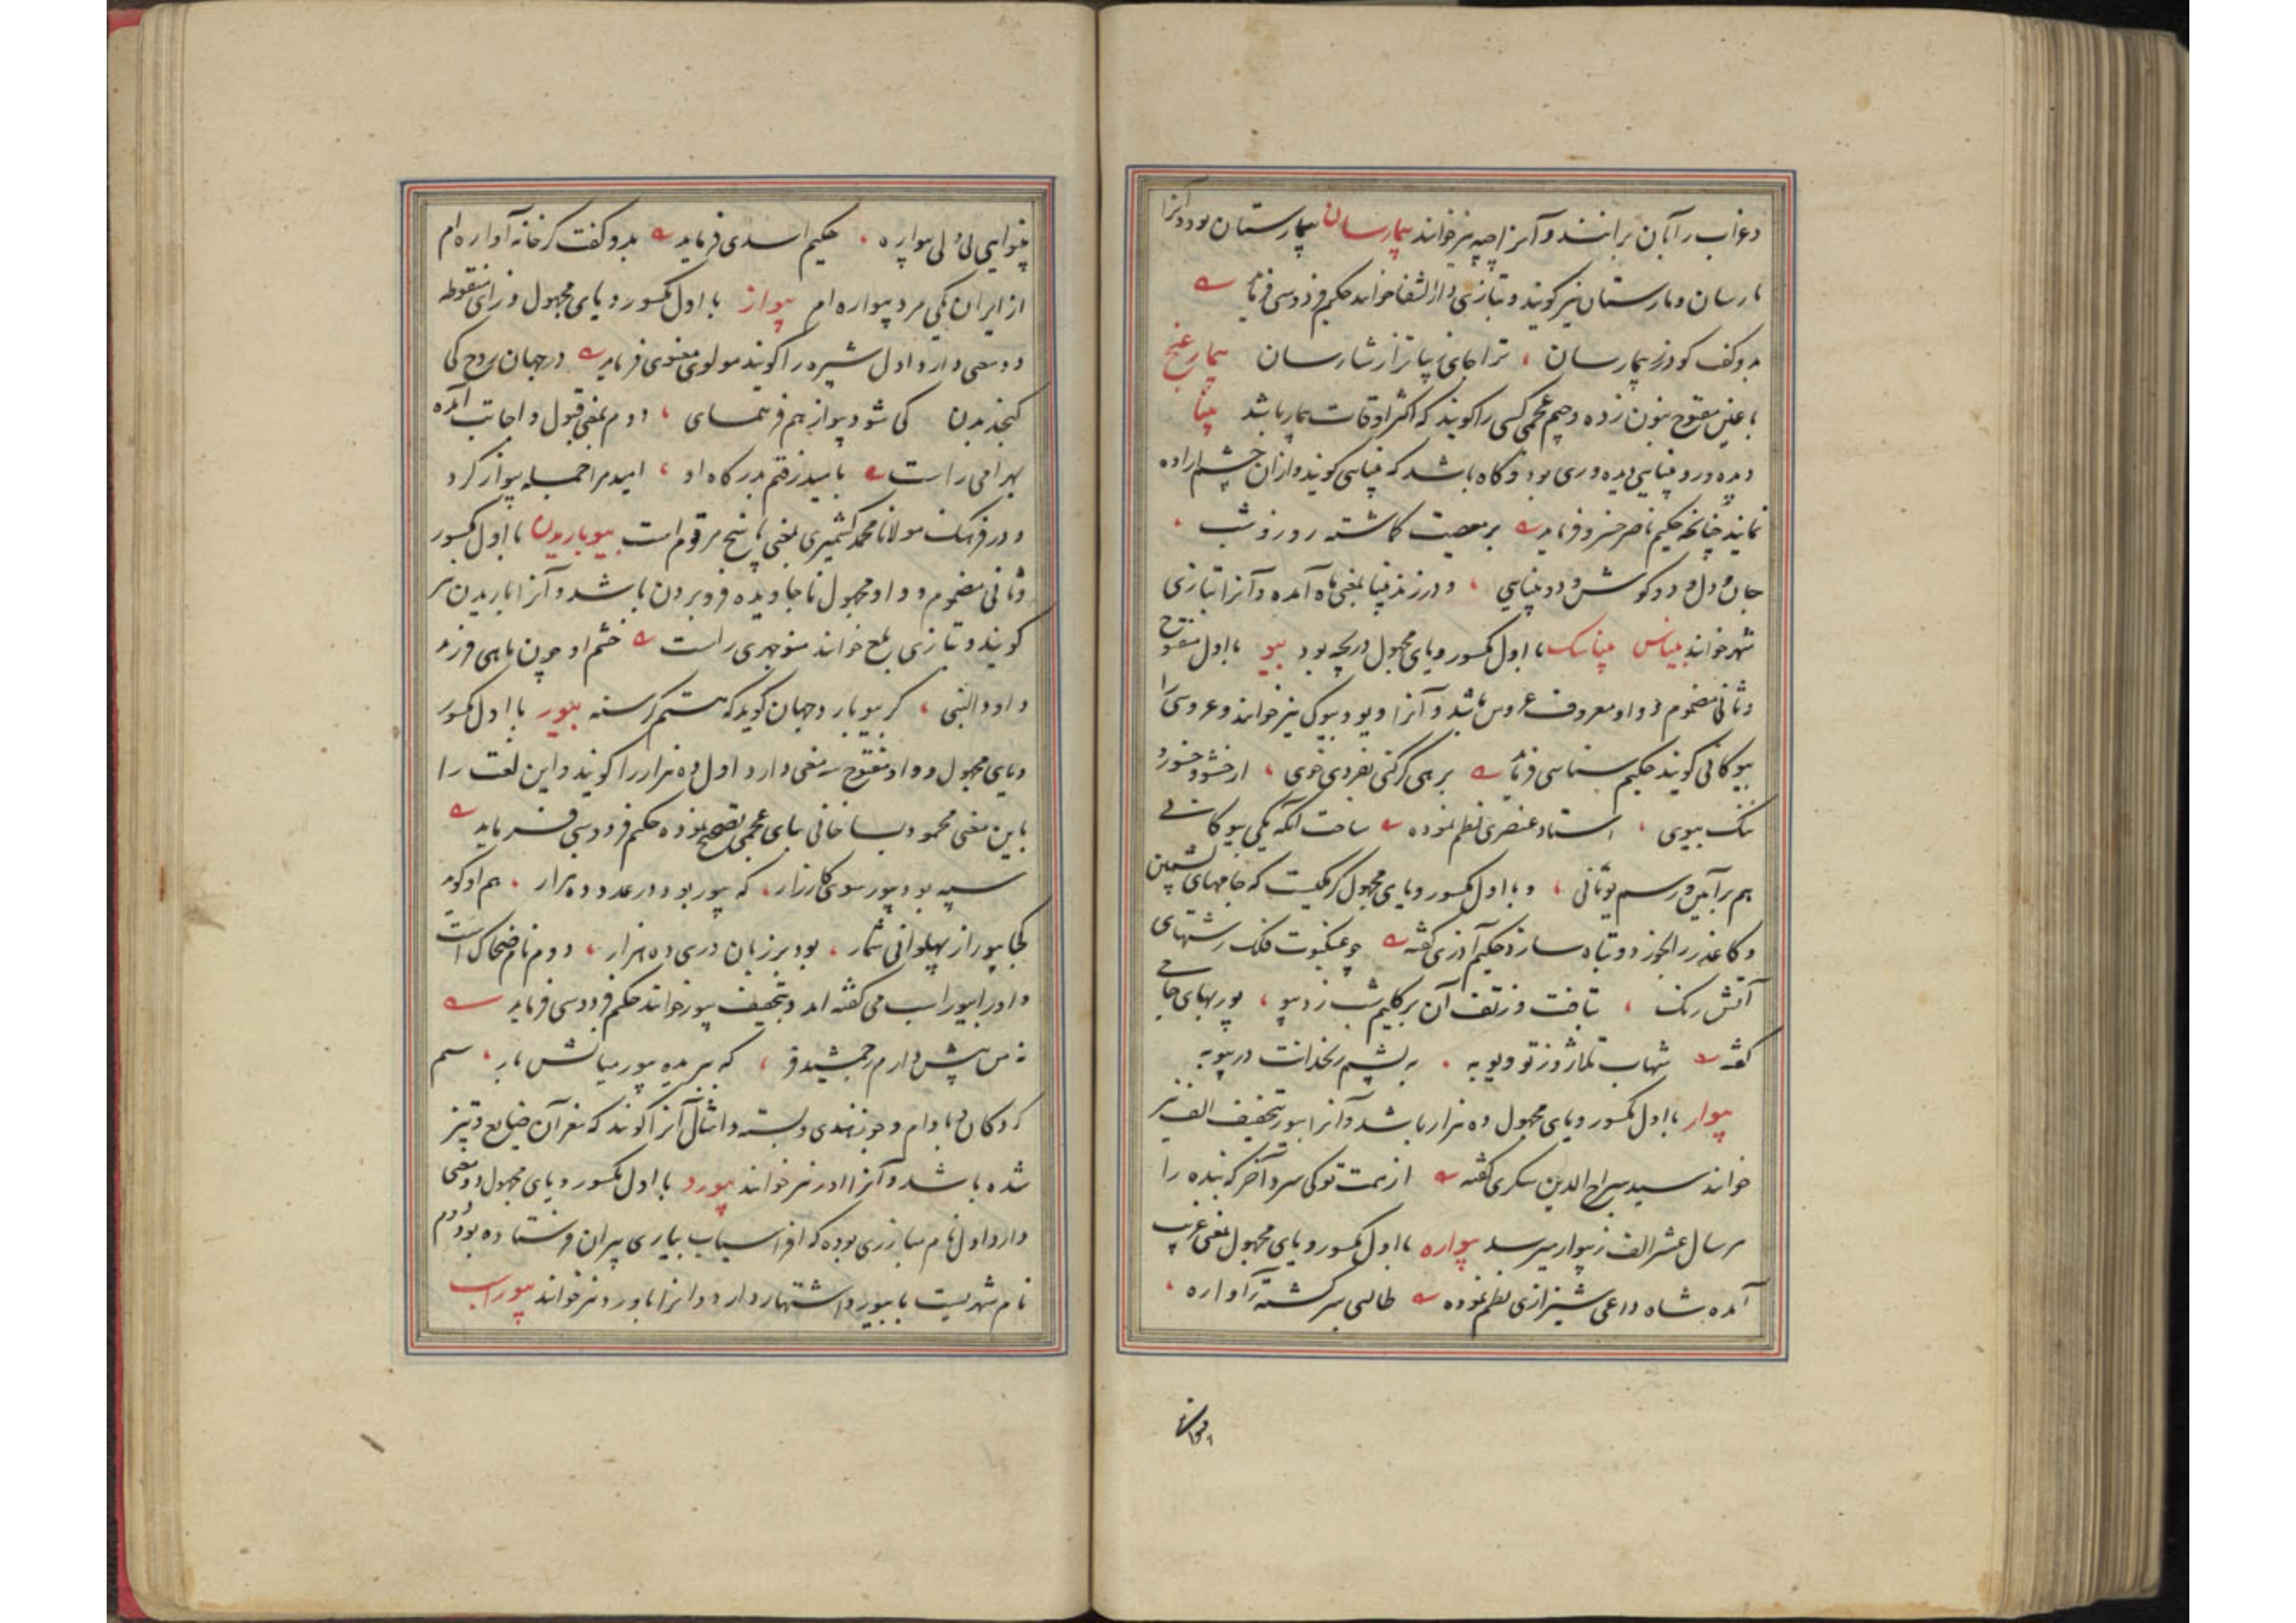 و غراب را بآن برانند و آنرا چپه نیز خوانند بیمارسان بیمارستان بود و آنرا
مارسان و مارستان نیز گویند و بتازی دارالشفا خوانند حکیم فردوسی فرماید
بدو گفت گودرز بیمارسان ترا جای زیباتر از شارسان بیمارغنج
با غین مفتوح بنون زده و جیم عجمی کسی را گویند که اکثر اوقات بیمار باشد بینا
دیده ور و بینایی دیده وری بود و گاه باشد که بینایی گویند و ازان چشم اراده
نمایند چنانچه حکیم ناصر خسرو فرماید بر معصیت گاشته روز و شب
جان و دل و دو گوش و دو بینایی و در زند بینا بمعنی ماه آمده و آنرا بتازی
شهر خوانند بیناس بیناسک با اول مکسور و یای مجهول دریچه بود بیو با اول مفتوح
و ثانی مضموم و واو معروف عروس باشد و آنرا ویو و بیوک نیز خوانند و عروسی را
بیوکانی گویند حکیم سنایی فرماید بر بهی گر کنی بفردی خوی از خشو و خسوره
ننگ بیوی استاد عنصری نظم نموده ساخت آنگه یکی بیوکانی
هم بر آیین و رسم یونانی و با اول مکسور و یای مجهول کرمیست که جامهای پشمین
و کاغذ را بخورد و تباه سازد حکیم آذری گفته چو عنکبوت فلک رشتهای
آتش رنگ بتافت وز تف آن بر گلیم شب زد بیو پوربهای جامی
گفته شهاب تو و به پشم زنخدانت در
بیوار با اول مکسور و یای مجهول ده هزار باشد و آنرا بیور بتخفیف الف نیز
خوانند سید سراج الدین سکزی گفته از همت تو کی سزد آخر که بنده را
هر سال عشر الف ز بیوار میرسد بیواره با اول مکسور و یای مجهول بمعنی غریب
آمده شاه داعی شیرازی نظم نموده طالبی سرگشته آواره
بینوایی بی دلی بیواره حکیم اسدی فرماید بدو گفت کز خانه آواره ام
از ایران یکی مرد بیواره ام بیواز با اول مکسور و یای مجهول و زای منقوطه
دو معنی دارد اول شبپره را گویند مولوی معنوی فرماید در جهان روح کی
گنجد بدن کی شود بیواز هم فر همای دوم بمعنی قبول و اجابت آمده
بهرامی راست بامید رفتم بدرگاه او امید مرا جمله بیواز کرد
و در فرهنگ مولانا محمد کشمیری بمعنی پاسخ مرقومست بیوباریدن با اول مکسور
و ثانی مضموم و واو مجهول ناجاویده فرو بردن باشد و آنرا اوباریدن نیز
گویند و بتازی بلع خوانند منوچهری راست خشم او چون ماهی فرزند
داود النبی گر بیوبارد جهان گوید که هستم گرسنه بیور با اول مکسور
و یای مجهول و واو مفتوح سه معنی دارد اول ده هزار را گویند و این لغت را
باین معنی محمود بیاخانی ببای عجمی تصحیح نموده حکیم فردوسی فرماید
سپه بود بیور سوی کارزار که بیور بود در عدد ده هزار هم او گوید
کجا بیور از پهلوانی شمار بود بر زبان دری ده هزار دوم نام ضحاک است
و او را بیوراسب می گفته اند و بتخفیف بیور خوانند حکیم فردوسی فرماید
نه من بیش دارم ز جمشید فر که ببرید بیور میانش بار سیم
گردکان و بادام و جوز هندی و پسته و امثال آنرا گویند که مغز آن ضایع و تیز
شده باشد و آنرا اور نیز خوانند بیورد با اول مکسور و یای مجهول دو معنی
دارد اول نام مبارزی بوده که افراسیاب بیاری پیران فرستاده بود دوم
نام شهریست بابیورد اشتهار دارد و آنرا باورد نیز خوانند بیوراسب